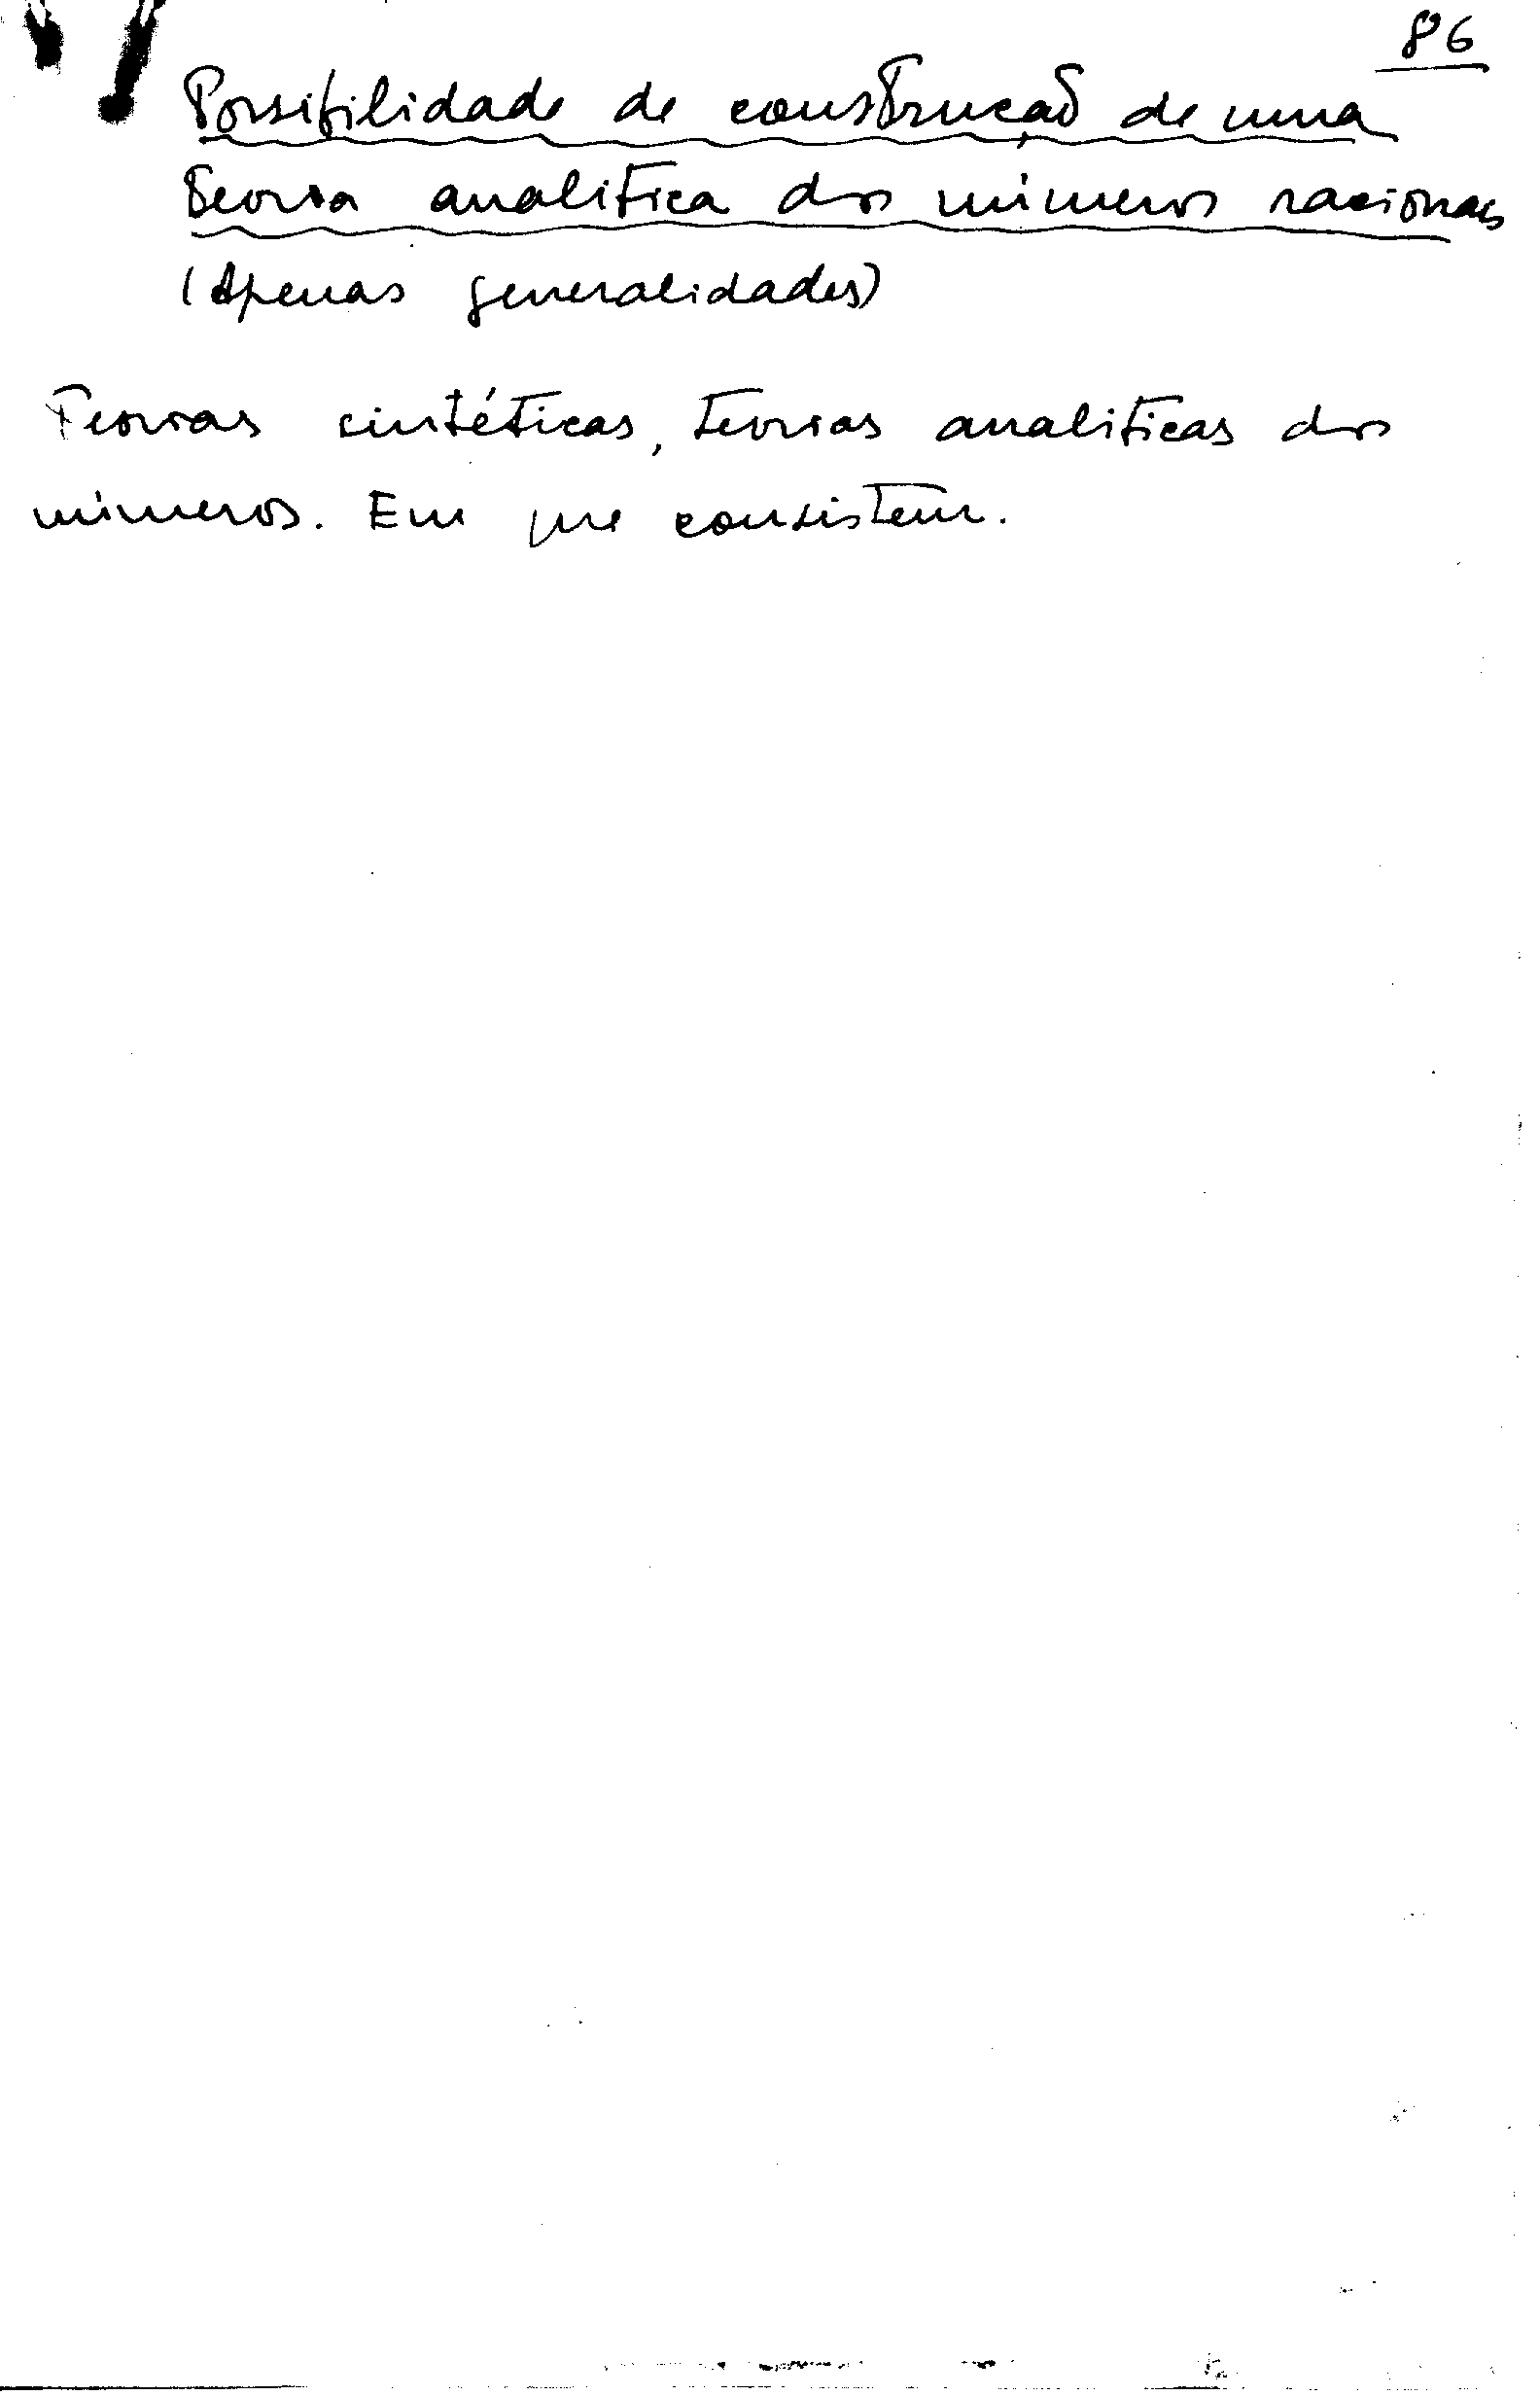 86
Possibilidade de construção de uma
Teoria analitica dos números racionais
(Apenas generalidades)
Teorias sintéticas, teorias analiticas dos
números. Em que consistem.